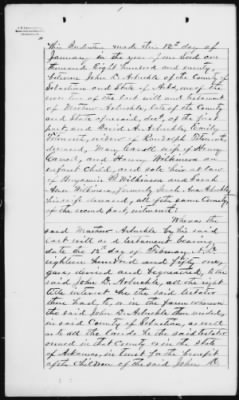 This Indenture made this 12th day of
January in the year of our Lord one
thousand Eight hundred and seventy
between John D. Arbuckle of the County of
Sebastian and State of Ark, one of the
of the last will and testament
of Mastow Arbuckle, late of the County
and State aforesaid, decd, of the first
part, and David A. Arbuckle, Emily
widow of Randolph
deceased, Mary Carroll wife of Henry
Carroll, and Henry Wilkinson an
infant Child, and sole heir at law
of Benjamin F. Wilkinson and Sarah
Ann Wilkinson, formerly Sarah Ann Arbuckle,
his wife deceased, all of the same County,
of the second part, witnesseth:
Whereas the
said Mastow Arbuckle by his said
last will and testament bearing
date the 12th day of February A.D.
eighteen hundred and fifty one,
gave, devised and bequeathed, to him
said John D. Arbuckle, all the right
title interest he the said testator
then had to, or in the farm whereon
the said John D. Arbuckle then resided,
in said County of Sebastian, as well
as to all the lands he the said testator
owned in that County or in the State
of Arkansas, in trust for the benefit
of the Children of the said John D.